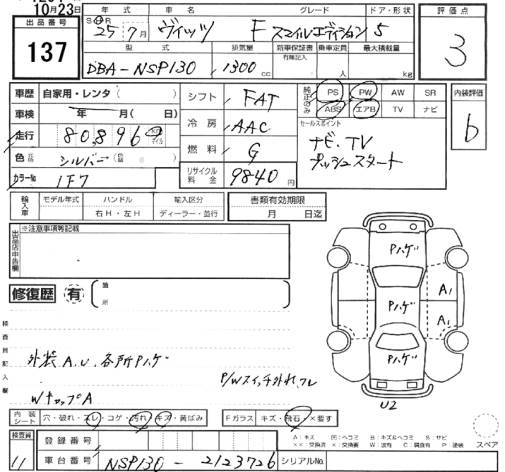 10月23日
年式 車名 グレード ドア・形状 評価点
出品番号 SH 25年 7月 ヴィッツ F スマイルエディション 5 3
137
型式 排気量 新車保証書 乗車定員 最大積載量
有無記入
DBA-NSP130 1300cc 人 kg
車歴 自家用・レンタ( ) シフト FAT 純正のみ PS PW AW SR 内装評価
車検 年 月(日) ABS エアB TV ナビ b
走行 80,896 冷房 AAC セールスポイント
ナビ、TV
色 シルバー 燃料 G プッシュスタート
カラーNo 1F7 リサイクル料金 9840円
輸入車 モデル年式 ハンドル 輸入区分 書類有効期限
右H・左H ディーラー・並行 月 日迄
出品店申告欄 ※注意事項等記載
修復歴 有 箇所
Pハゲ
A1
Pハゲ
A1
Pハゲ
U2
検査員記入欄
外装A.U.各所Pハゲ
P/Wスイッチ外れ、フレ
WキャップA
内装シート 穴・破れ・スレ・コゲ・汚れ・キズ・黄ばみ Fガラス キズ・飛石・×要す
A:キズ U:凹ヘコミ B:キズ&ヘコミ S:サビ
××:交換済 ×:要交換 W:波有 C:腐食有 P:塗装
スペア
検査員 11
登録番号
車台番号 NSP130-2123726 シリアルNo.